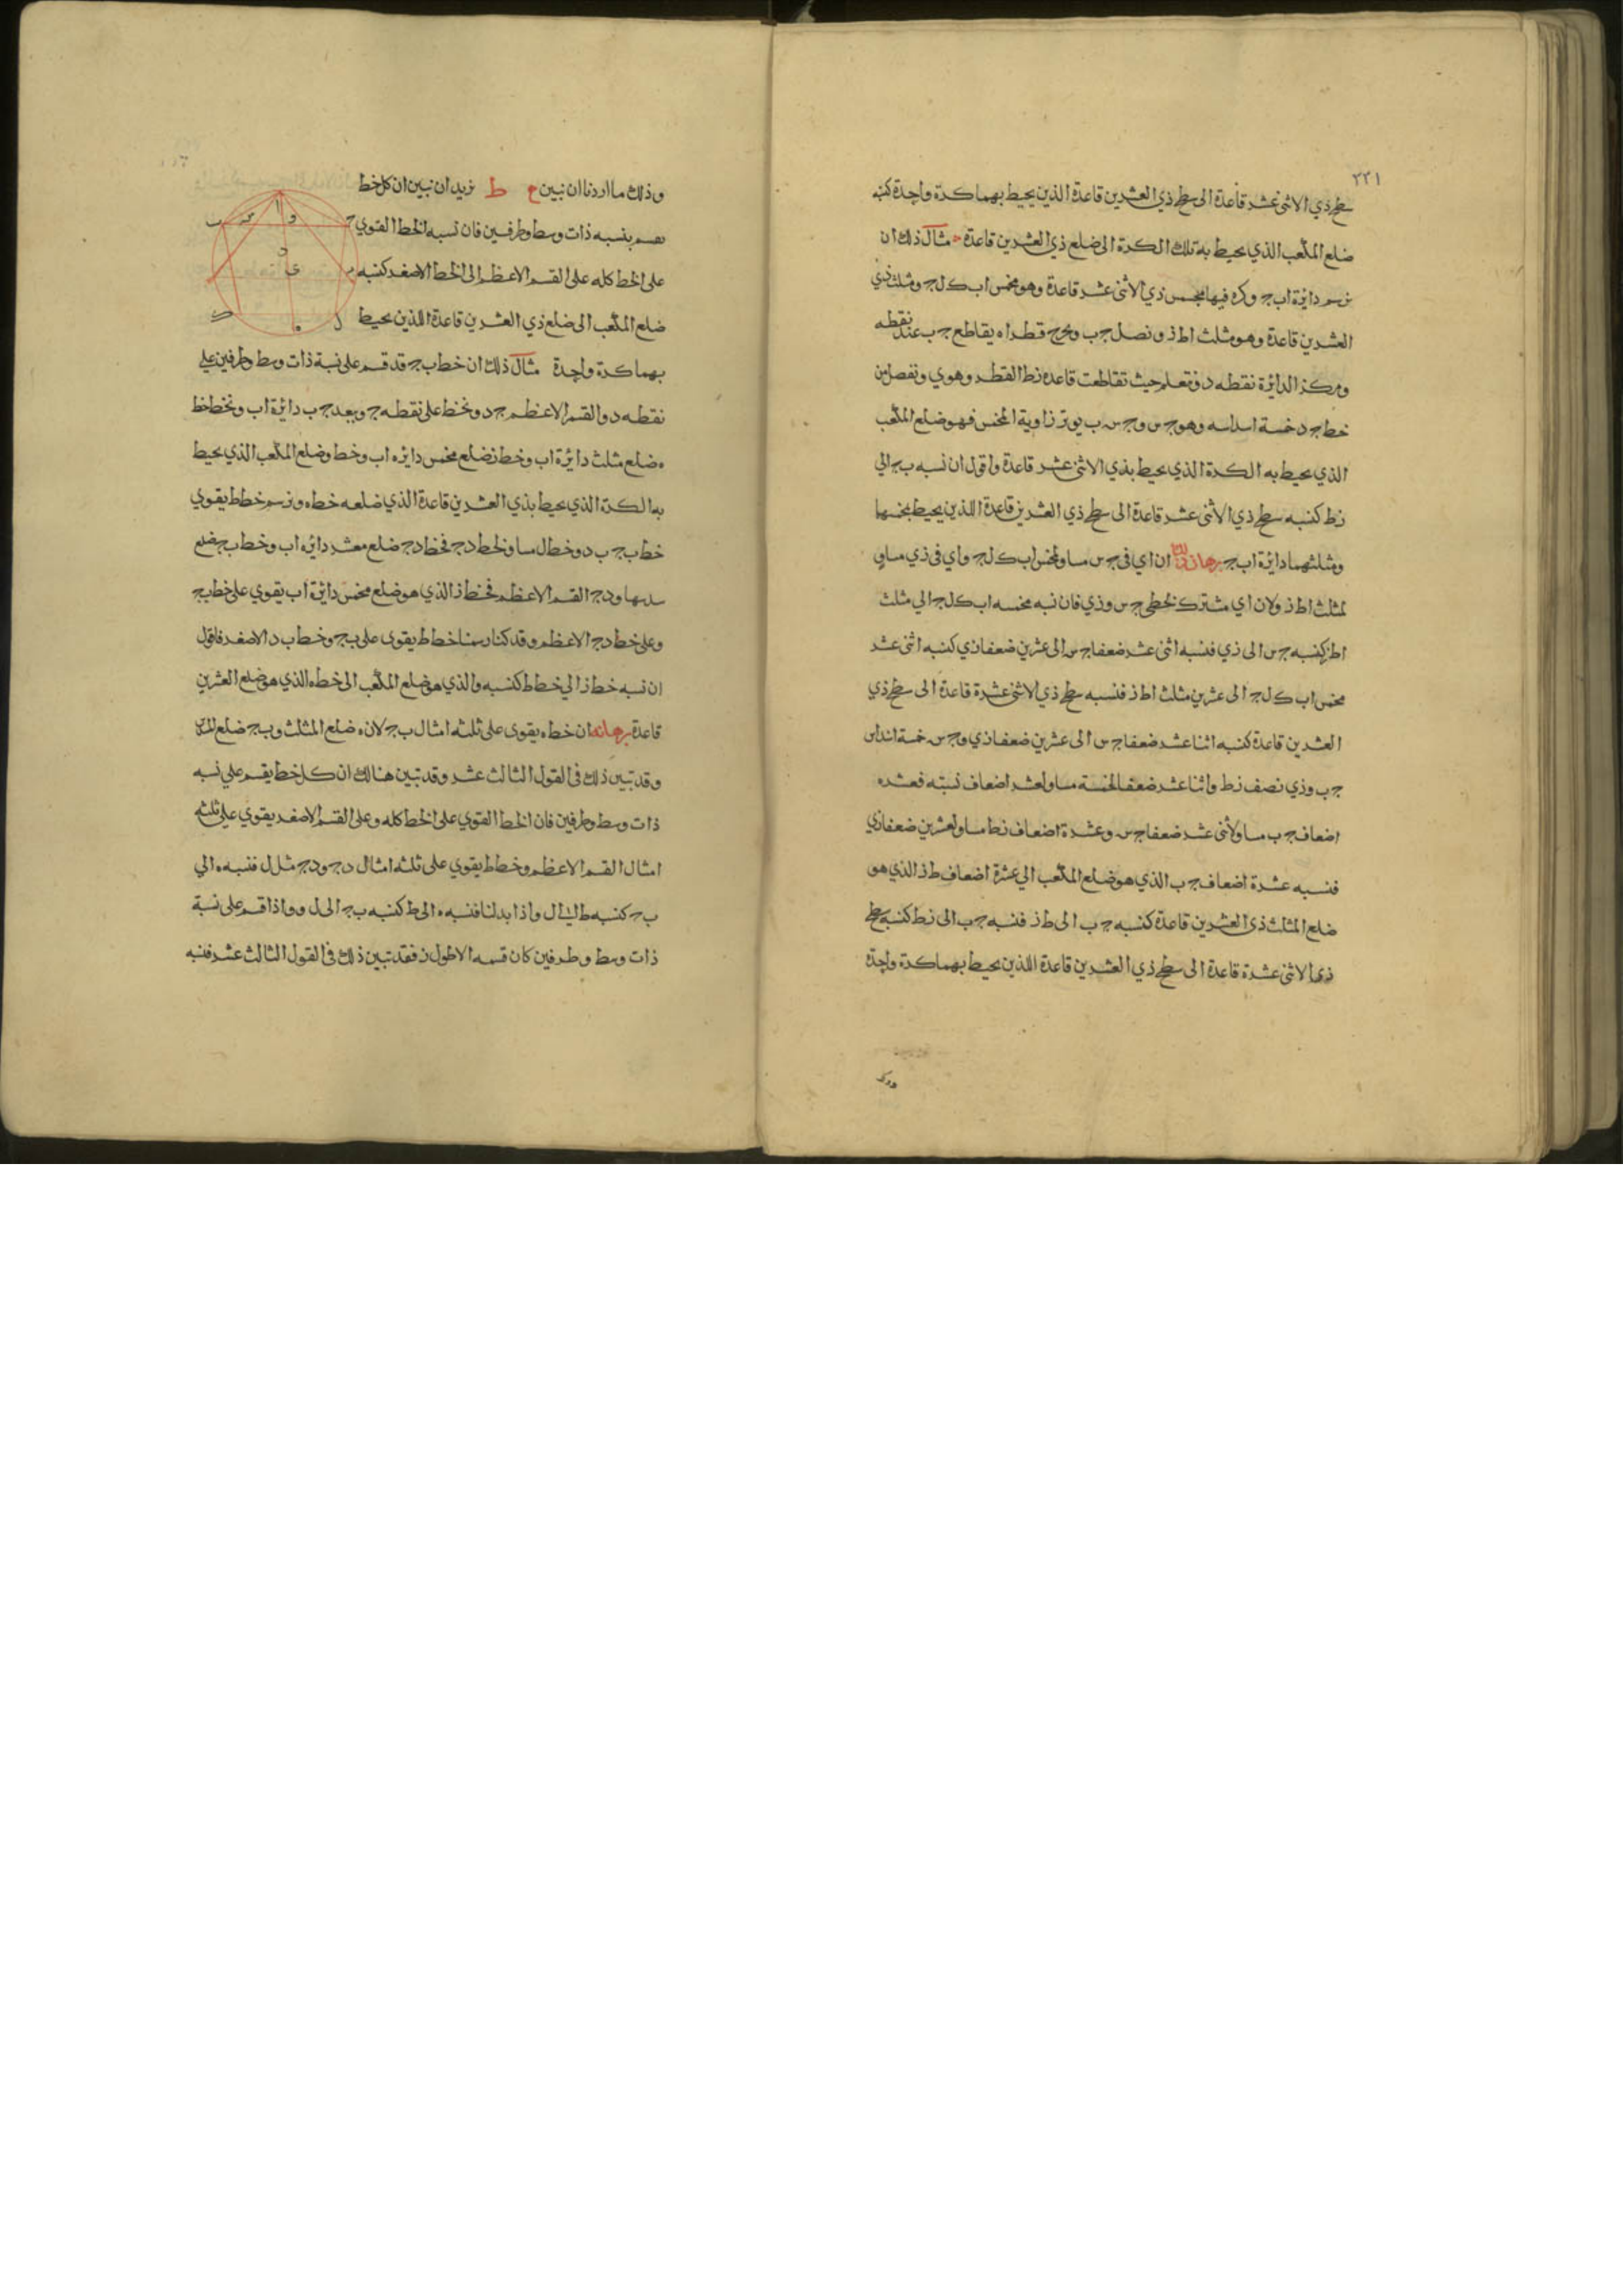 ٢٢١
سطح ذي الاثنى عشر قاعدة الى سطح ذي العشرين قاعدة الذين يحيط بهما كرة واحدة كنسبه
ضلع المكعب الذي يحيط به تلك الكرة الى ضلع ذي العشرين قاعدة مثال ذلك ان
نرسم دائرة اب ج وكره فيها مخمس ذي الاثنى عشر قاعدة وهو مخمس اب ك ل ج ومثلث ذي
العشرين قاعدة وهو مثلث اط ز ونصل ج ب ونخرج قطر اه يقاطع ج ب عند نقطه
ومركز الدائرة نقطه د ونعلم حيث تقاطعت قاعدة زط القطر وهو ي ونفصل من
خط ج د خمسة اسداسه وهو ج س و ج س ب يوتر زاوية المخمس فهو ضلع المكعب
الذي يحيط به الكرة الذي يحيط بذي الاثنى عشر قاعدة واقول ان نسبه ب ج الي
زط كنسبه سطح ذي الاثنى عشر قاعدة الى سطح ذي العشرين قاعدة اللذين يحيط بمخمسها
ومثلثهما دائرة اب ج برهان ذلك ان اي في ج س مساو لمخمس اب ك ل ج واي في ذي مساو
لمثلث اط ز ولان اي مشترك لخطي ج س وزي فان نسبه مخمسه اب ك ل ج الي مثلث
اط ز كنسبه ج س الى زي فنسبه اثنى عشر ضعفا ج س الى عشرين ضعفا زي كنسبه اثنى عشر
مخمس اب ك ل ج الى عشرين مثلث اط ز فنسبه سطح ذي الاثنى عشرة قاعدة الى سطح ذي
العشرين قاعدة كنسبه اثنا عشر ضعفا ج س الى عشرين ضعفا زي و ج س خمسة اسداس
ج ب وزي نصف زط واثنا عشر ضعفا لخمسة مساو لعشر اضعاف نسبته فعشره
اضعاف ج ب مساو لأثنى عشر ضعفا ج س وعشرة اضعاف زط مساو لعشرين ضعفا زي
فنسبه عشرة اضعاف ج ب الذي هو ضلع المكعب الي عشرة اضعاف ط ز الذي هو
ضلع المثلث ذي العشرين قاعدة كنسبه ج ب الى ط ز فنسبه ج ب الى زط كنسبه سطح
ذي الاثنى عشرة قاعدة الى سطح ذي العشرين قاعدة اللذين يحيط بهما كرة واحدة
وذلك
وذلك ما اردنا ان نبين ع ط نريد ان نبين ان كل خط
يقسم بنسبه ذات وسط وطرفين فان نسبه الخط القوي
على الخط كله على القسم الاعظم الى الخط الاصغر كنسبه
ضلع المكعب الى ضلع ذي العشرين قاعدة اللذين يحيط
بهما كرة واحدة مثال ذلك ان خط ب ج قد قسم على نسبة ذات وسط وطرفين علي
نقطه د والقسم الاعظم ج د ونخط على نقطه ج وببعد ج ب دائرة اب ونخط خط
ه ضلع مثلث دائرة اب وخط ز ضلع مخمس دائره اب وخط و ضلع المكعب الذي يحيط
به الكرة الذي يحيط بذي العشرين قاعدة الذي ضلعه خط ه ونرسم خط ط يقوي
خط ب ج ب د وخط ال مساو لخط د ج فخط د ج ضلع معشر دائره اب وخط ب ج ضلع
سدسها ود ج القسم الاعظم فخط ز الذي هو ضلع مخمس دائرة اب يقوي على خط ب ج
وعلى خط د ج الاعظم وقد كنا رسمنا خط ط يقوى على ب ج وخط ب د الاصغر فاقول
ان نسبه خط ز الي خط ط كنسبه و الذي هو ضلع المكعب الى خط ه الذي هو ضلع العشرين
قاعدة برهانه ان خط ه يقوى على ثلثه امثال ب ج لان ه ضلع المثلث و ب ج ضلع المسدس
وقد تبين ذلك في القول الثالث عشر وقد تبين هنالك ان كل خط يقسم علي نسبه
ذات وسط وطرفين فان الخط القوي على الخط كله وعلى القسم الاصغر يقوي علي ثلثه
امثال القسم الاعظم وخط ط يقوي على ثلثه امثال د ج ود ج مثل ل فنسبه ه الي
ب ج كنسبه ط الى ل واذا بدلنا فنسبه ه الى ط كنسبه ب ج الى ل و واذا قسم على نسبة
ذات وسط وطرفين كان قسمه الاطول ز فقد تبين ذلك في القول الثالث عشر فنسبه